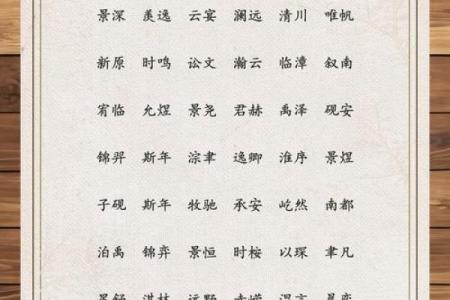 景深 羡逸 云宴 澜远 清川 唯帆
新原 时鸣 讼文 瀚云 临漳 叙南
宥临 允煜 景尧 君赫 禹泽 砚安
锦羿 斯年 淙聿 逸卿 淮序 景煜
子砚 斯年 牧驰 承安 屹然 南都
泊禹 锦弈 景恒 时桉 以琛 聿凡